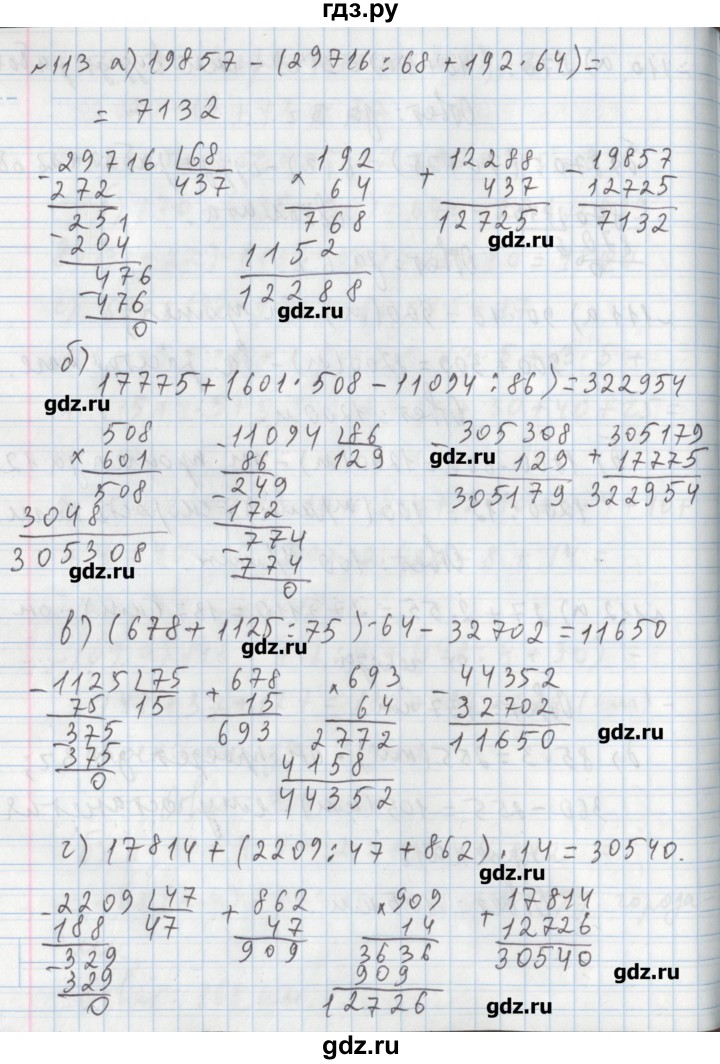 гдз.ру
№113 а) 19857 - (29716 : 68 + 192 · 64) =
= 7132
- 29716 | 68
272
437
- 251
204
- 476
476
0
× 192
64
768
1152
12288
+ 12288
437
12725
- 19857
12725
7132
gdz.ru
gdz.ru
б)
17775 + (601 · 508 - 11094 : 86) = 322954
gdz.ru
× 508
601
508
3048
305308
gdz.ru
- 11094 | 86
86
129
- 249
172
- 774
774
0
- 305308
129
305179
gdz.ru
+ 305179
17775
322954
gdz.ru
в) (678 + 1125 : 75) · 64 - 32702 = 11650
gdz.ru
- 1125 | 75
75
15
- 375
375
0
+ 678
15
693
× 693
64
2772
4158
44352
- 44352
32702
11650
gdz.ru
г) 17814 + (2209 : 47 + 862) · 14 = 30540.
gdz.ru
- 2209 | 47
188
47
- 329
329
0
+ 862
47
909
× 909
14
3636
909
12726
+ 17814
12726
30540
gdz.ru
gdz.ru
gdz.ru